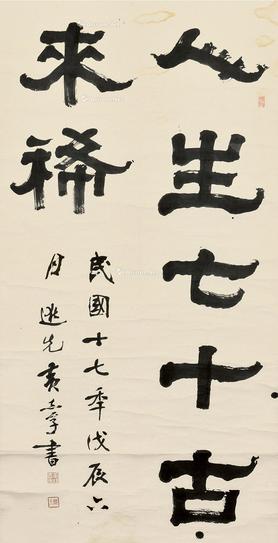 人生七十古
來稀
民國十七秊戊辰六
月先書